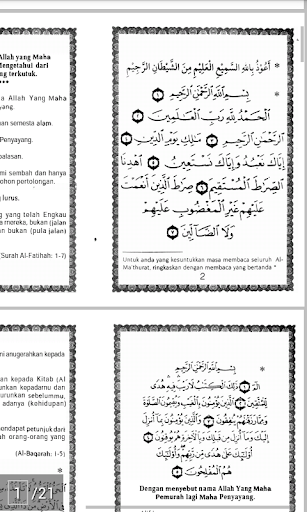 Allah yang Maha
Mengetahui dari
ng terkutuk.
***
a Allah Yang Maha
yang.
uan semesta alam.
Penyayang.
balasan.
mi sembah dan hanya
ohon pertolongan.
g lurus.
g yang telah Engkau
a mereka, bukan (jalan
n bukan (pula jalan)
(Surah Al-Fatihah: 1-7)
أَعُوْذُ بِاللهِ السَّمِيْعِ الْعَلِيْمِ مِنَ الشَّيْطَانِ الرَّجِيْمِ
بِسْمِ اللَّهِ الرَّحْمَٰنِ الرَّحِيمِ
الْحَمْدُ لِلَّهِ رَبِّ الْعَالَمِينَ
الرَّحْمَٰنِ الرَّحِيمِ مَالِكِ يَوْمِ الدِّينِ
إِيَّاكَ نَعْبُدُ وَإِيَّاكَ نَسْتَعِينُ اهْدِنَا
الصِّرَاطَ الْمُسْتَقِيمَ صِرَاطَ الَّذِينَ أَنْعَمْتَ
عَلَيْهِمْ غَيْرِ الْمَغْضُوبِ عَلَيْهِمْ
وَلَا الضَّالِّينَ
*
Untuk anda yang kesuntukkan masa membaca seluruh Al-
Ma'thurat, ringkaskan dengan membaca yang bertanda *
2
ni anugerahkan kepada
*
an kepada Kitab (Al
runkan kepadamu dan
urunkan sebelummu,
adanya (kehidupan)
endapat petunjuk dari
ah orang-orang yang
(Al-Baqarah: 1-5)
*
بِسْمِ اللَّهِ الرَّحْمَٰنِ الرَّحِيمِ
الم ذَٰلِكَ الْكِتَابُ لَا رَيْبَ فِيهِ هُدًى
لِلْمُتَّقِينَ الَّذِينَ يُؤْمِنُونَ بِالْغَيْبِ وَيُقِيمُونَ الصَّلَاةَ
وَمِمَّا رَزَقْنَاهُمْ يُنْفِقُونَ وَالَّذِينَ يُؤْمِنُونَ بِمَا أُنْزِلَ
إِلَيْكَ وَمَا أُنْزِلَ مِنْ قَبْلِكَ وَبِالْآخِرَةِ هُمْ يُوقِنُونَ
أُولَٰئِكَ عَلَىٰ هُدًى مِنْ رَبِّهِمْ وَأُولَٰئِكَ
هُمُ الْمُفْلِحُونَ
Dengan menyebut nama Allah Yang Maha
Pemurah lagi Maha Penyayang.
1 /21